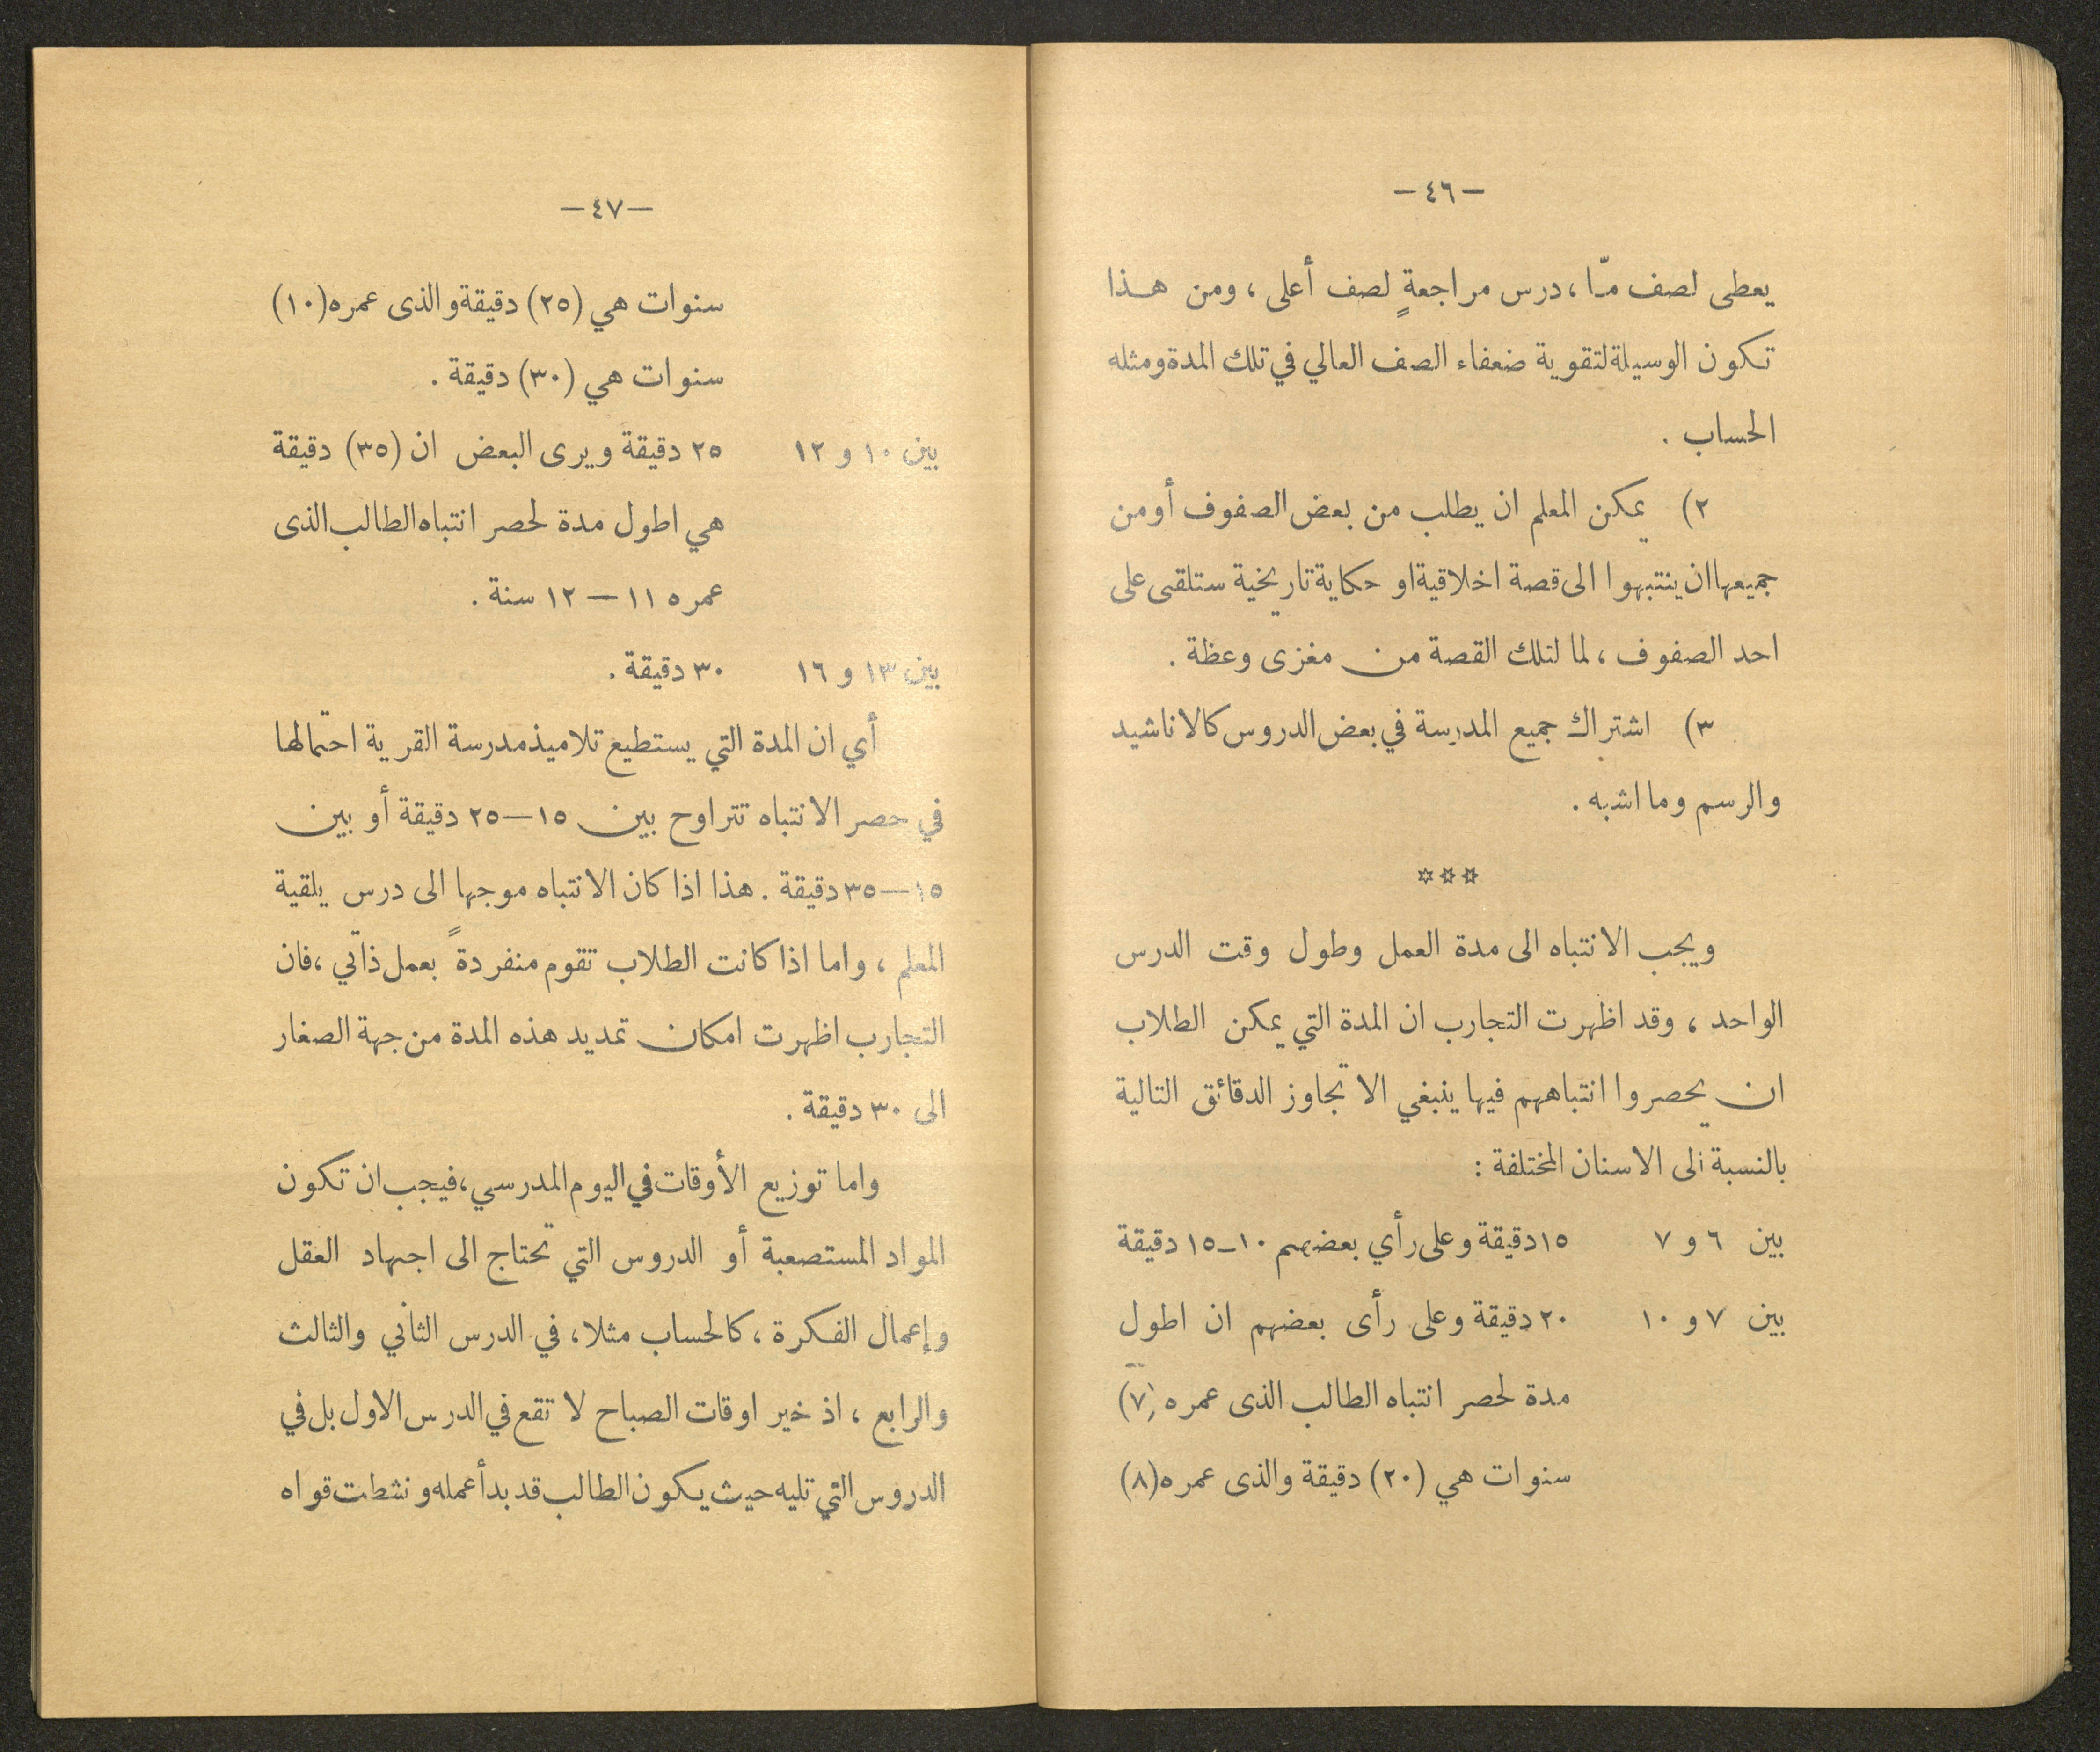 — ٤٦ —
يعطى لصف مّا ، درس مراجعةٍ لصف أعلى ، ومن هذا
تكون الوسيلة لتقوية ضعفاء الصف العالي في تلك المدة ومثله
الحساب .
٢) يمكن المعلم ان يطلب من بعض الصفوف أو من
جميعها ان ينتبهوا الى قصة اخلاقية او حكاية تاريخية ستلقى على
احد الصفوف ، لما لتلك القصة من مغزى وعظة .
٣) اشتراك جميع المدرسة في بعض الدروس كالاناشيد
والرسم وما اشبه .
***
ويجب الانتباه الى مدة العمل وطول وقت الدرس
الواحد ، وقد اظهرت التجارب ان المدة التي يمكن الطلاب
ان يحصروا انتباههم فيها ينبغي الا تجاوز الدقائق التالية
بالنسبة الى الاسنان المختلفة :
بين ٦ و ٧ ١٥ دقيقة وعلى رأي بعضهم ١٠–١٥ دقيقة
بين ٧ و ١٠ ٢٠ دقيقة وعلى رأى بعضهم ان اطول
مدة لحصر انتباه الطالب الذى عمره (٧)
سنوات هي (٢٠) دقيقة والذى عمره (٨)
— ٤٧ —
سنوات هي (٢٥) دقيقة والذى عمره (١٠)
سنوات هي (٣٠) دقيقة .
بين ١٠ و ١٢ ٢٥ دقيقة ويرى البعض ان (٣٥) دقيقة
هي اطول مدة لحصر انتباه الطالب الذى
عمره ١١ — ١٢ سنة .
بين ١٣ و ١٦ ٣٠ دقيقة .
أي ان المدة التي يستطيع تلاميذ مدرسة القرية احتمالها
في حصر الانتباه تتراوح بين ١٥—٢٥ دقيقة أو بين
١٥—٣٥ دقيقة . هذا اذا كان الانتباه موجها الى درس يلقية
المعلم ، واما اذا كانت الطلاب تقوم منفردةً بعمل ذاتي ، فان
التجارب اظهرت امكان تمديد هذه المدة من جهة الصغار
الى ٣٠ دقيقة .
واما توزيع الأوقات في اليوم المدرسي ، فيجب ان تكون
المواد المستصعبة أو الدروس التي تحتاج الى اجهاد العقل
وإعمال الفكرة ، كالحساب مثلا ، في الدرس الثاني والثالث
والرابع ، اذ خير اوقات الصباح لا تقع في الدرس الاول بل في
الدروس التي تليه حيث يكون الطالب قد بدأ عمله ونشطت قواه